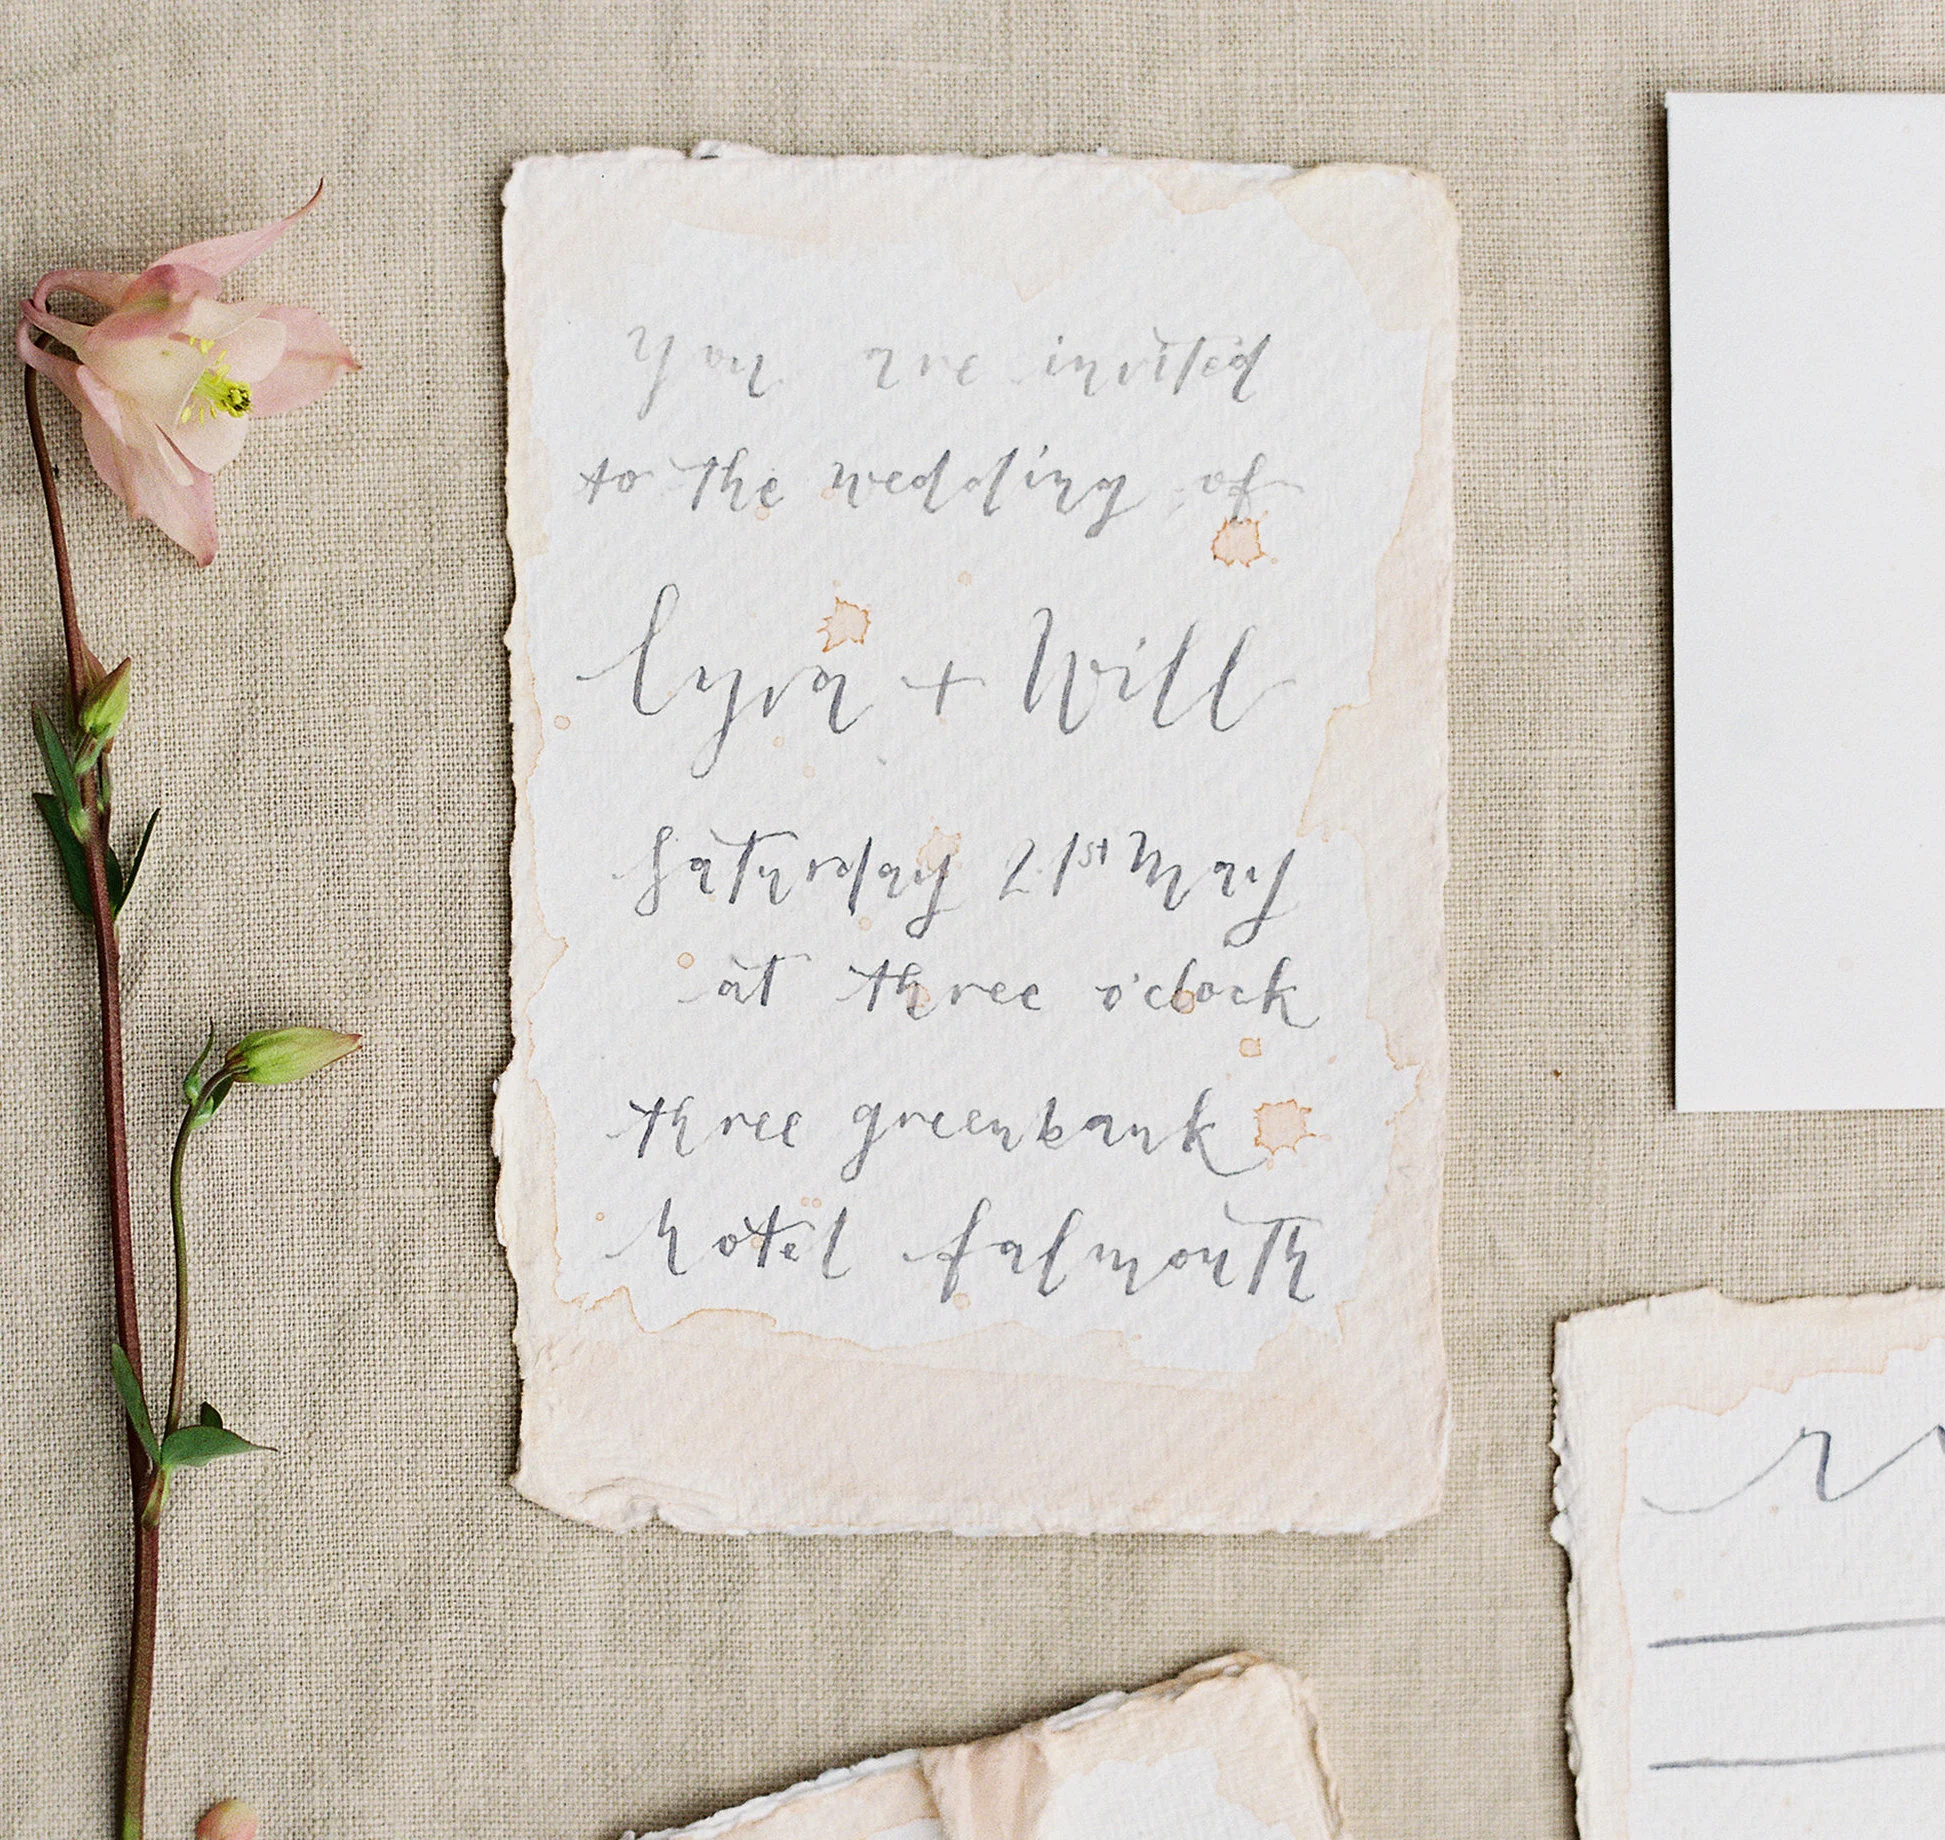 You are invited
to the wedding of
lyra + Will
Saturday 21st May
at three o'clock
three greenbank
hotel falmouth